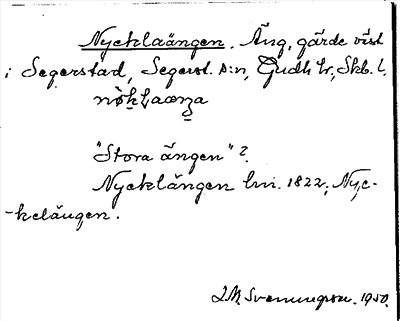 Nycklaängen. Äng, gärde väst
i Segerstad, Segerst. s:n, Gudh. hr, Skb. l.
"Stora ängen"?
Nycklängen lm. 1822, Nyc-
-kelängen.
J M Svenungson. 1950.